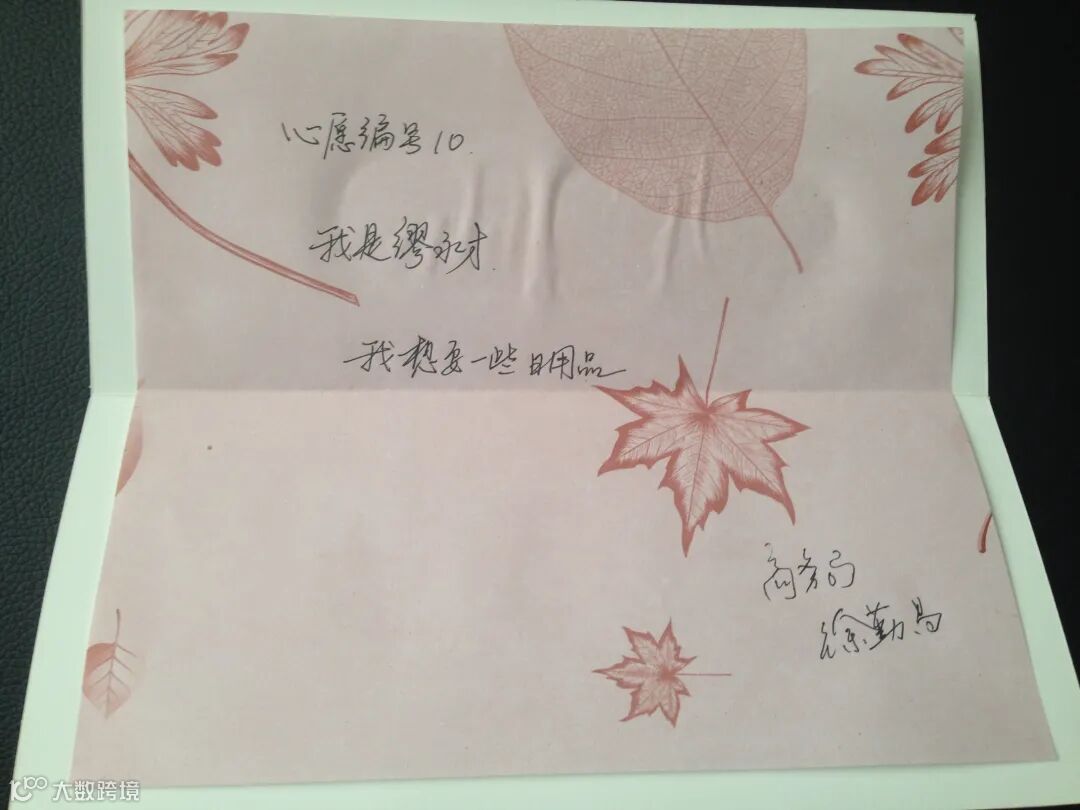 心愿编号10.
我是缪永才.
我想要一些日用品
商务局
徐勤昌
大数跨境